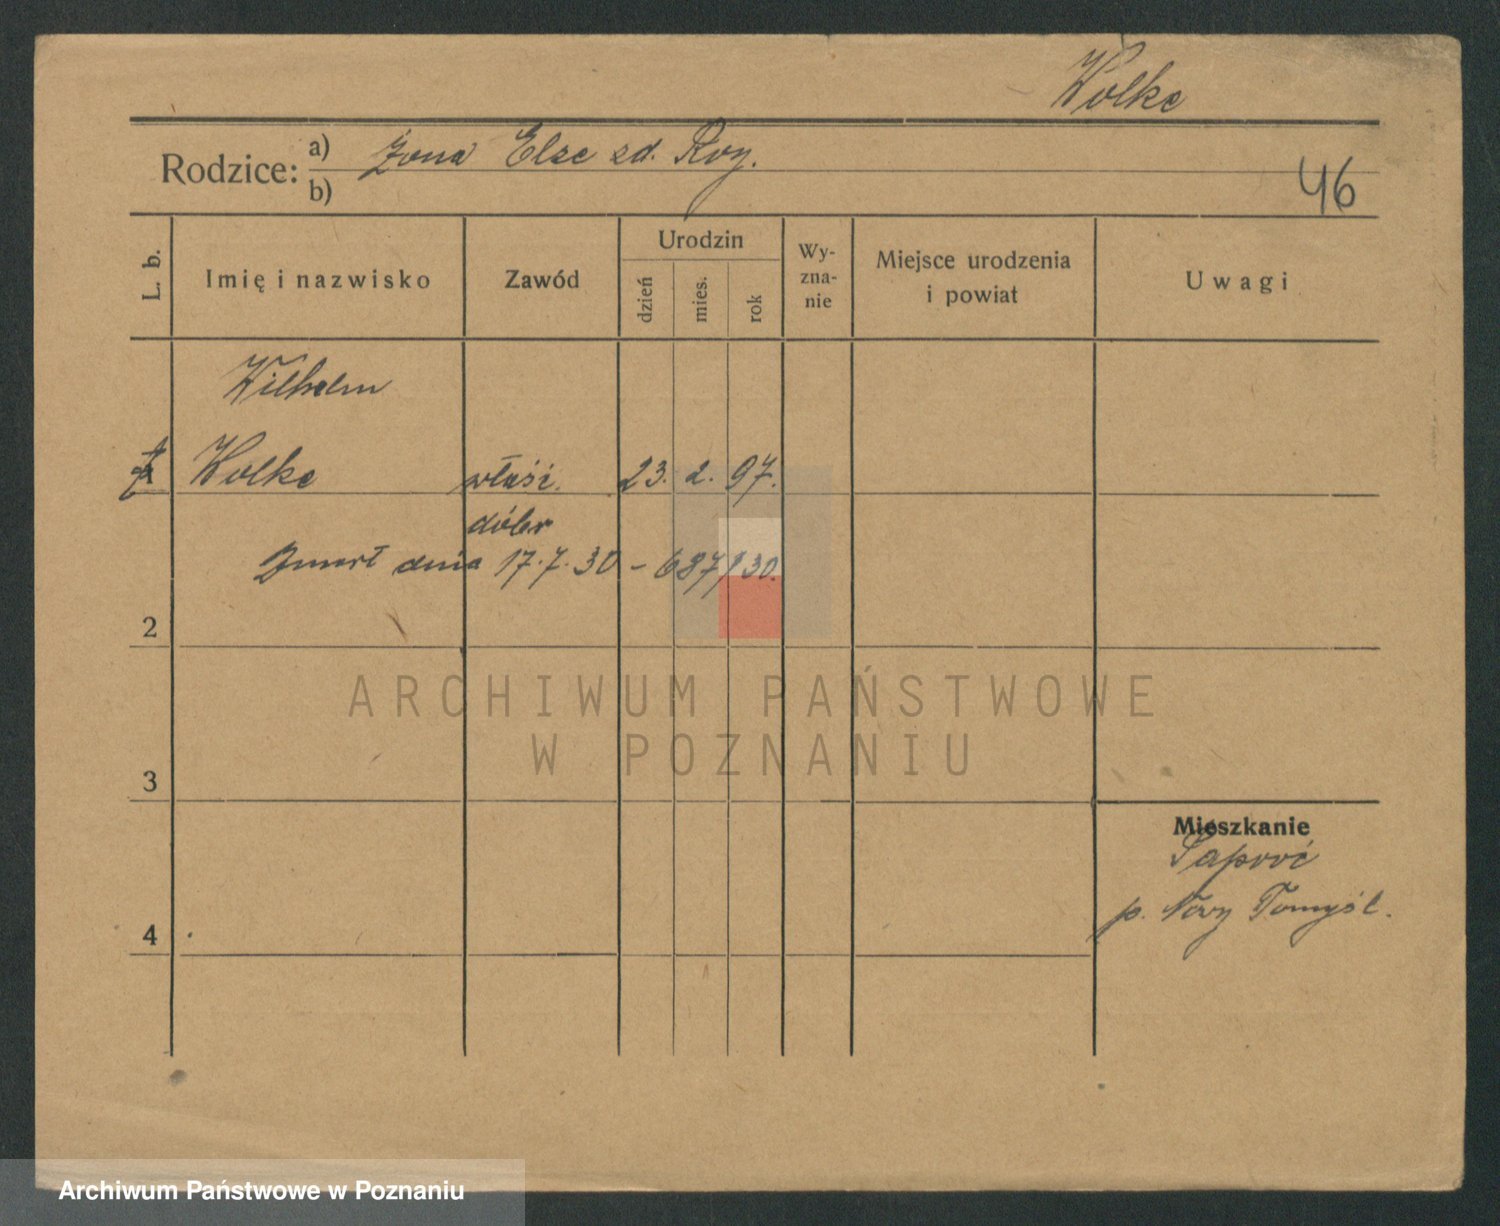 Wolke
Rodzice: a) Żona Else zd. Roy.
b)
46
L. b.
Imię i nazwisko
Zawód
Urodzin
dzień
mies.
rok
Wy-
zna-
nie
Miejsce urodzenia
i powiat
Uwagi
Wilhelm
1 Wolke właśc. 23. 2. 97.
dóbr
Zmarł dnia 17.7.30 - 687/30.
2
ARCHIWUM PAŃSTWOWE
W POZNANIU
3
Mieszkanie
p. Nowy Tomyśl.
4
Archiwum Państwowe w Poznaniu